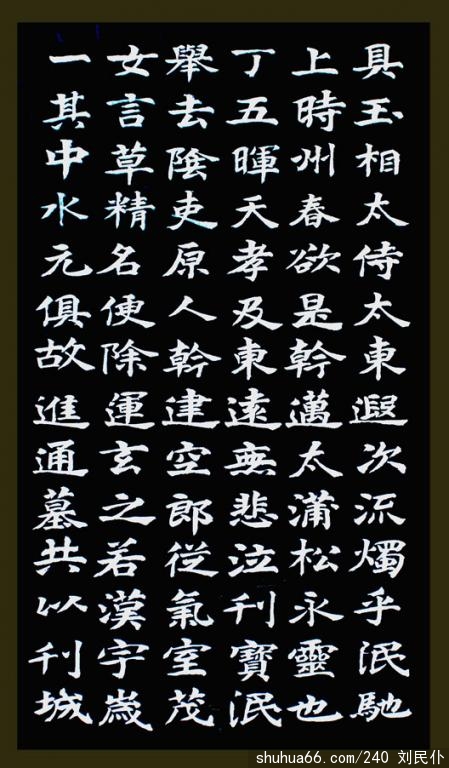 具玉相太侍太東遐次流燭乎泯馳
上時州春欲是幹邁太蒲松永靈也
丁五暉天孝及東遠無悲泣刊寶泯
舉去陰吏原人幹建空郎從氣室茂
女言草精名便除運玄之若漠宇歲
一其中水元俱故進通墓共以刊城
shuhua66.com/240 刘民仆